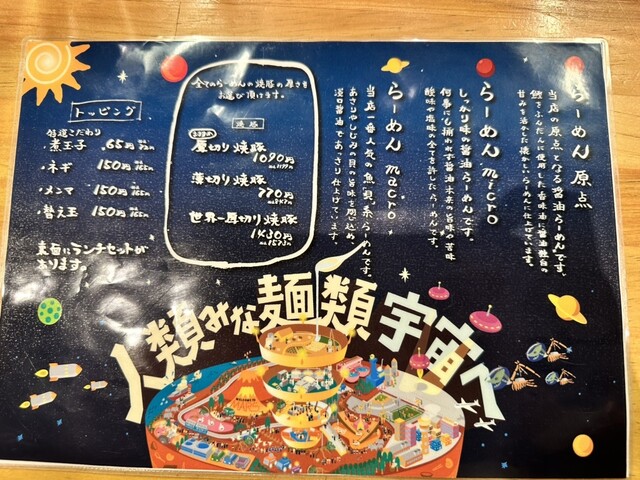 らーめん 原点
当店の原点となる醤油らーめんです。
鰹をふんだんに使用した香味油に醤油独自の
甘みを活かした懐かしいらーめんに仕上げています。
らーめん micro
しっかり味の醤油らーめんです。
何事にも捕われず醤油本来の旨味や苦味
酸味や塩味の全てを許したらーめんです。
らーめん macro
当店一番人気の魚貝系らーめんです。
あさりやしじみの貝の旨味を閉じ込め、
淡口醤油であっさり仕上げています。
全てのらーめんの焼豚の厚さを
お選び頂けます。
焼豚
おすすめ
厚切り焼豚
1090円
税込1199円
薄切り焼豚
770円
税込847円
世界一厚切り焼豚
1430円
税込1573円
トッピング
・特選こだわり
煮玉子 65円
・ネギ 150円 税込165円
・メンマ 150円 税込165円
・替え玉 150円 税込165円
裏面にランチセットが
あります。
人類みな麺類宇宙へ